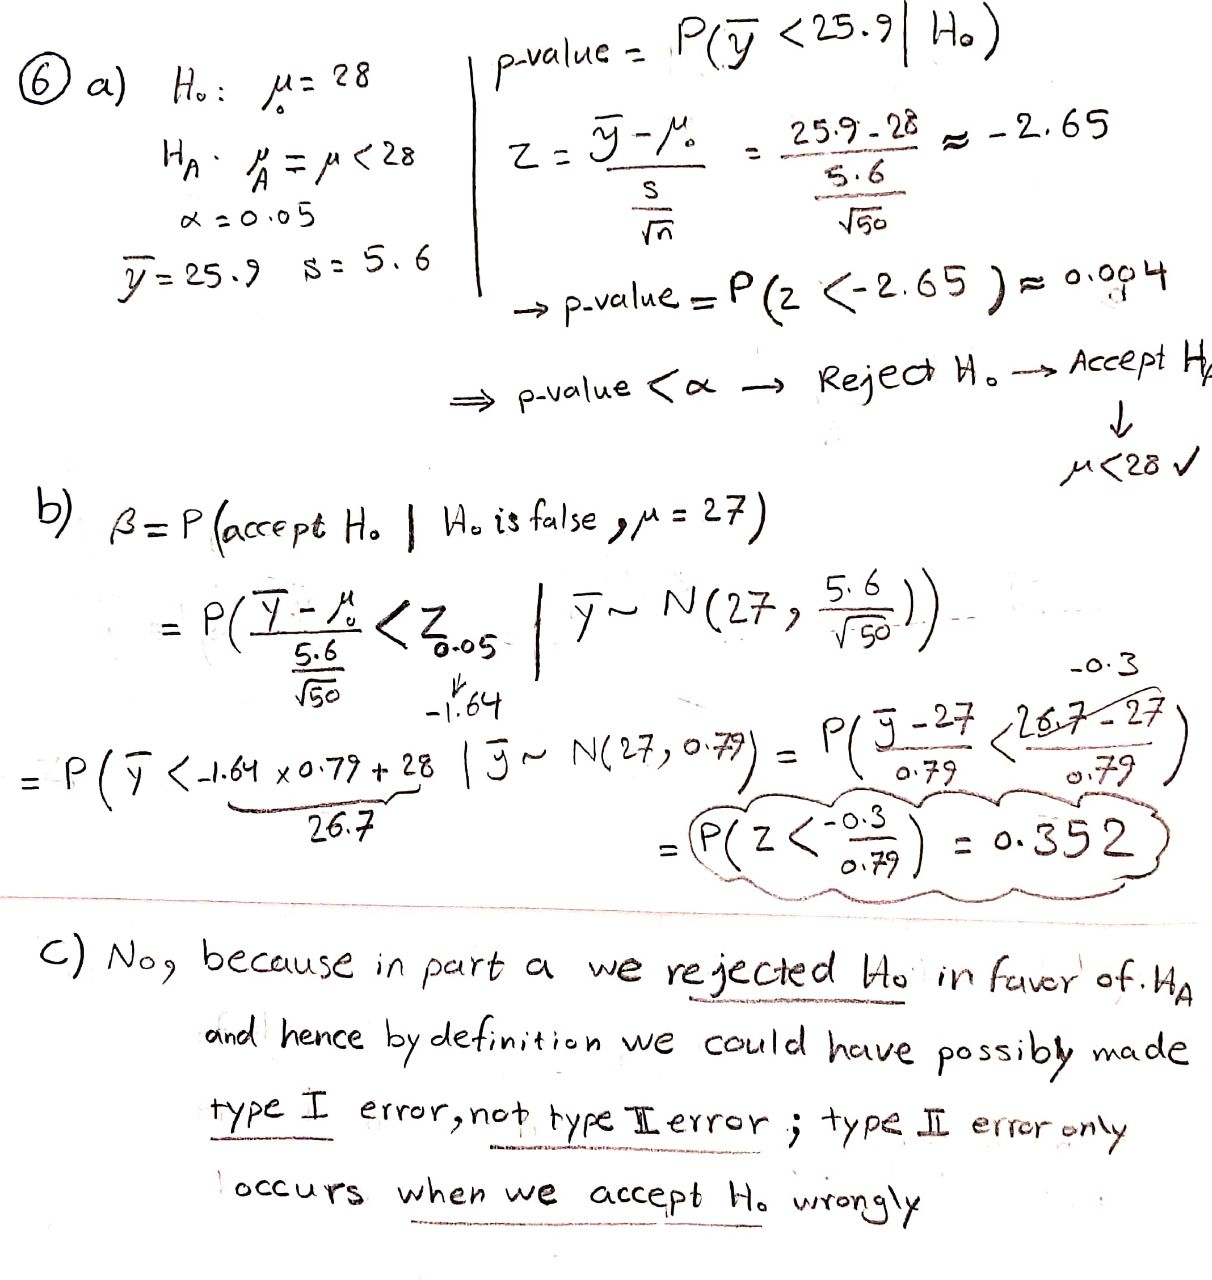 ⑥ a) H₀: μ₀ = 28
H_A: μ_A = μ < 28
α = 0.05
ȳ = 25.9 s = 5.6
p-value = P(ȳ < 25.9 | H₀)
z = (ȳ - μ₀) / (s/√n) = (25.9 - 28) / (5.6/√50) ≈ -2.65
→ p-value = P(z < -2.65) ≈ 0.004
⇒ p-value < α → Reject H₀ → Accept H_A
↓
μ < 28 ✓
b) β = P(accept H₀ | H₀ is false, μ = 27)
= P((ȳ - μ₀) / (5.6/√50) < Z₀.₀₅ | ȳ ~ N(27, 5.6/√50))
-1.64
-0.3
= P(ȳ < -1.64 × 0.79 + 28 | ȳ ~ N(27, 0.79)) = P((ȳ - 27)/0.79 < (26.7 - 27)/0.79)
26.7
= P(z < -0.3/0.79) = 0.352
c) No, because in part a we rejected H₀ in favor of H_A
and hence by definition we could have possibly made
type I error, not type II error; type II error only
occurs when we accept H₀ wrongly